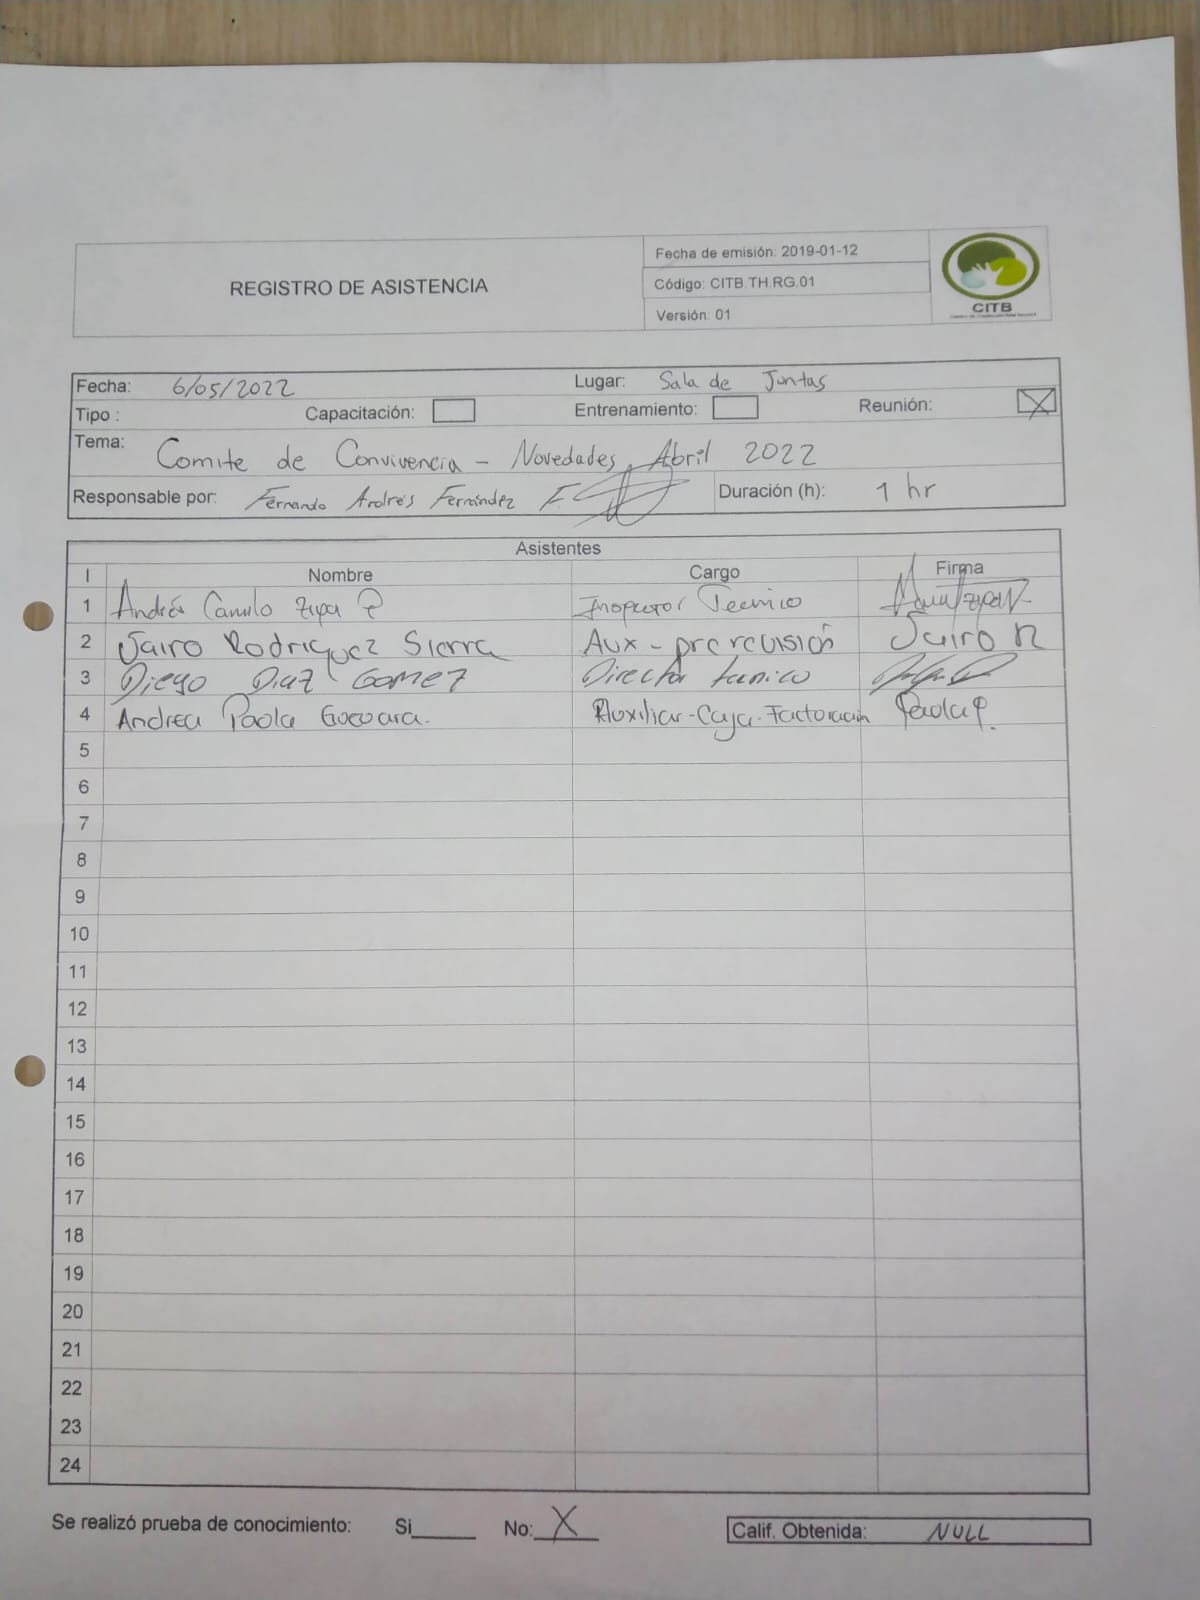 REGISTRO DE ASISTENCIA
Fecha de emisión: 2019-01-12
Código: CITB.TH.RG.01
Versión: 01
CITB
Fecha: 6/05/2022 Lugar: Sala de Juntas
Tipo : Capacitación: Entrenamiento: Reunión: X
Tema: Comite de Convivencia - Novedades Abril 2022
Responsable por: Fernando Andrés Fernández F. Duración (h): 1 hr
Asistentes
I Nombre Cargo Firma
1 Andrés Camilo Zipa P Inspector Tecnico
2 Jairo Rodriguez Sierra Aux - prerevisión Jairo R
3 Diego Diaz Gomez Director tecnico
4 Andrea Paola Guevara. Auxiliar-Caja-Facturación Paola
5
6
7
8
9
10
11
12
13
14
15
16
17
18
19
20
21
22
23
24
Se realizó prueba de conocimiento: Si No: X Calif. Obtenida: NULL